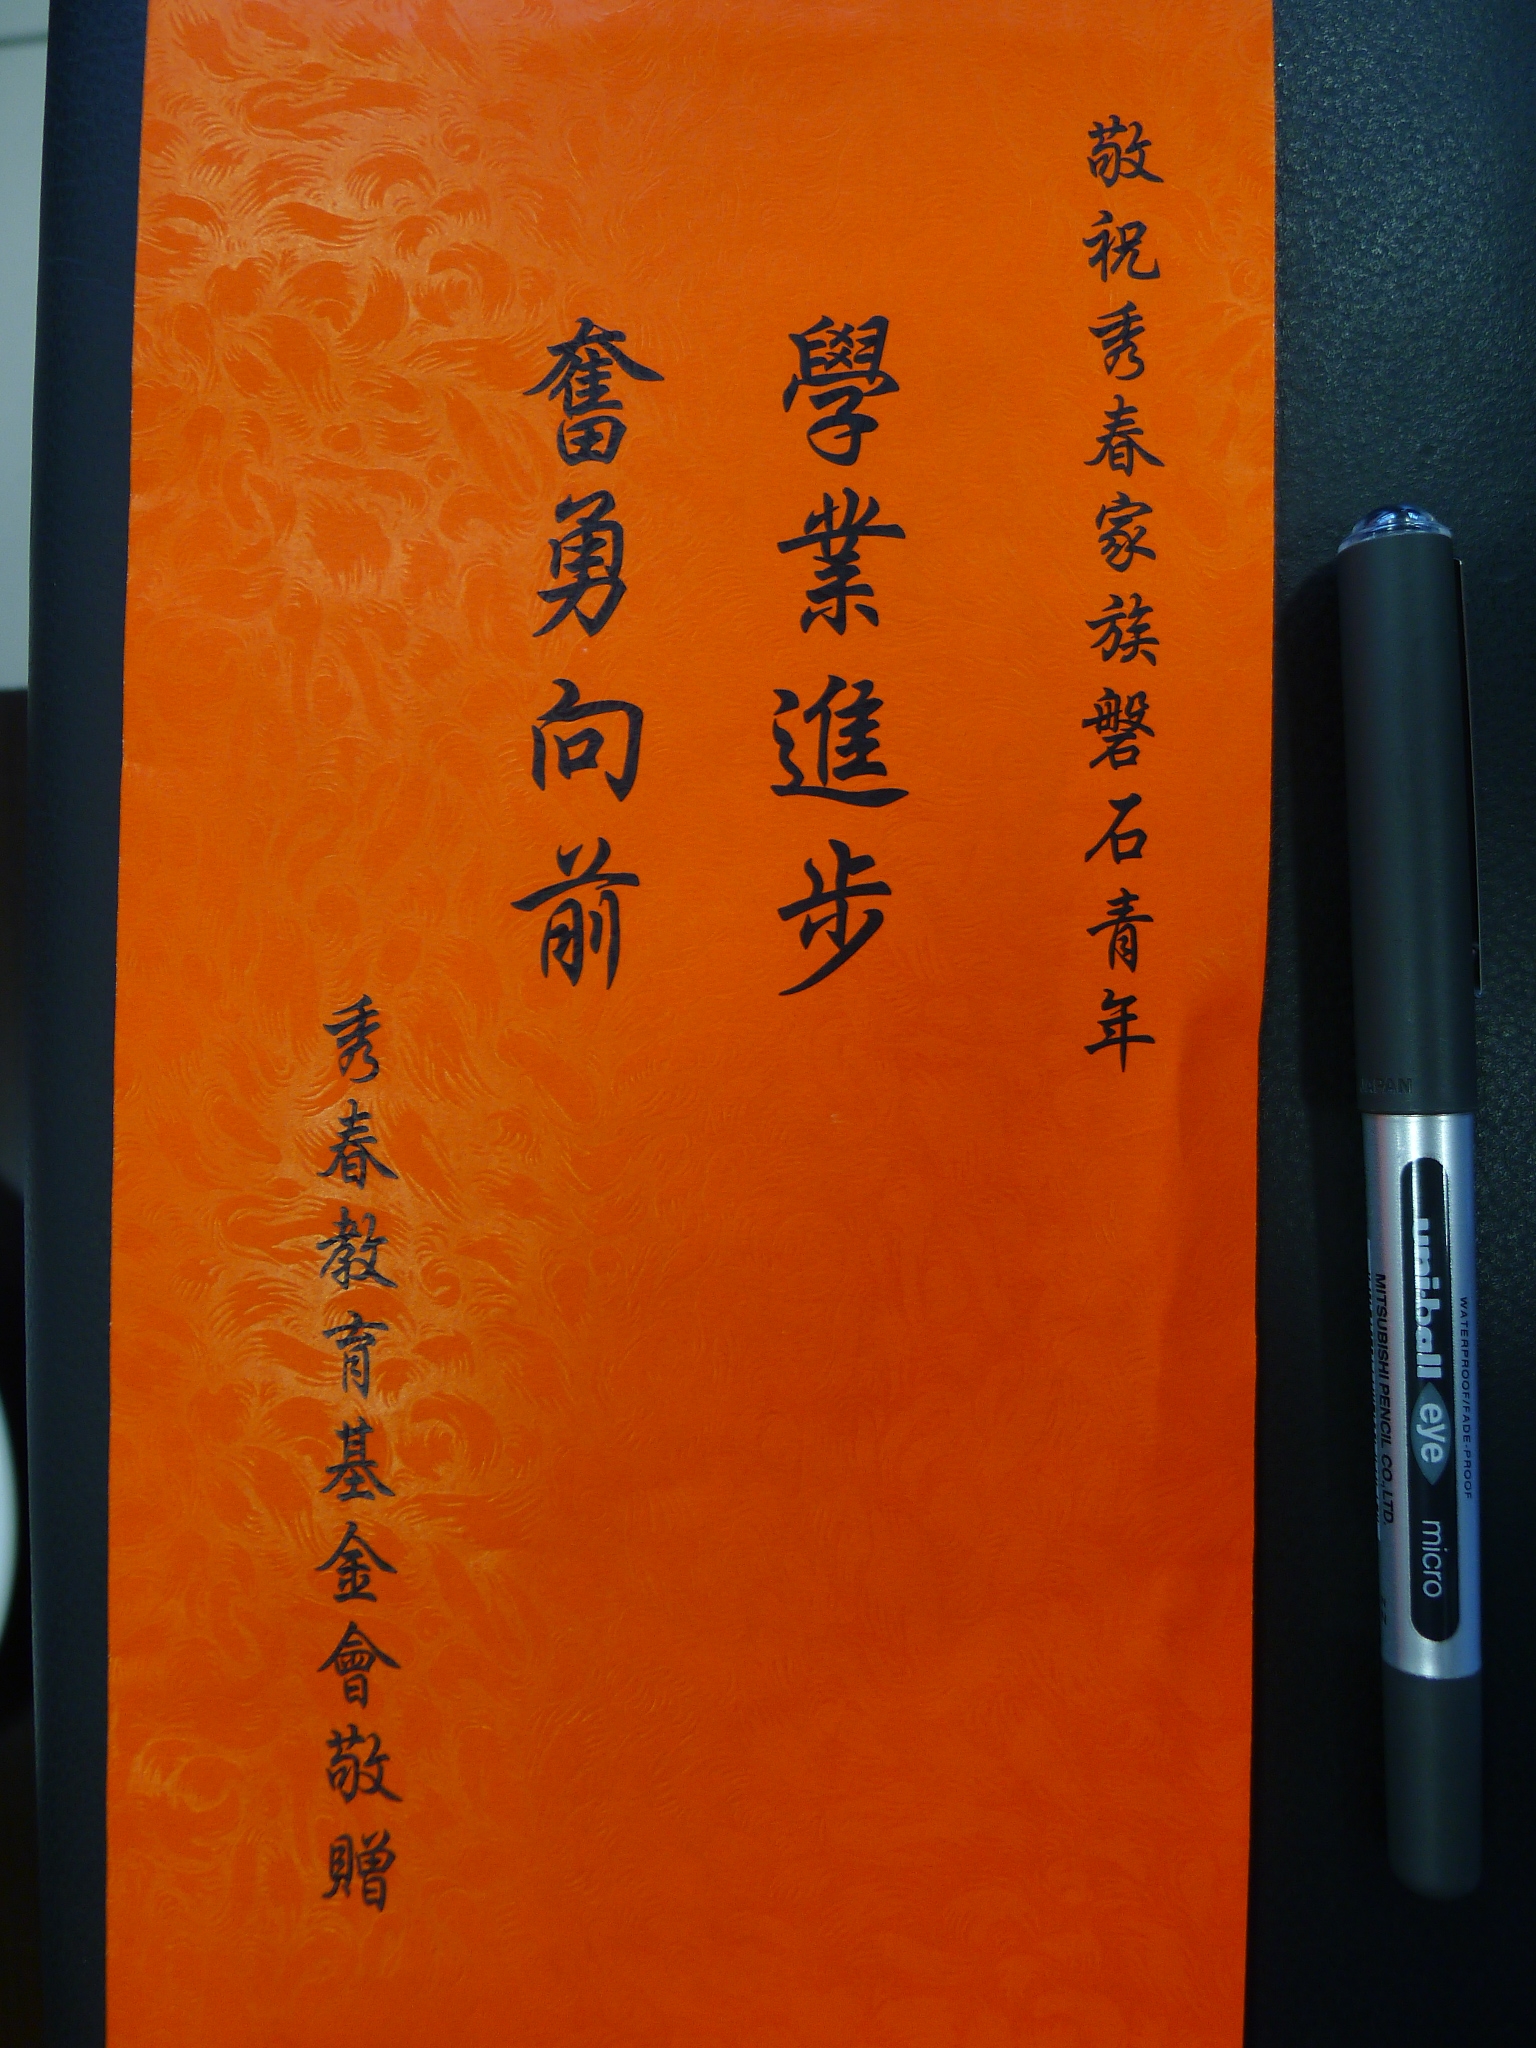 敬祝秀春家族磐石青年
學業進步
奮勇向前
秀春教育基金會敬贈
JAPAN
uni-ball eye micro
WATERPROOF/FADE-PROOF
MITSUBISHI PENCIL CO., LTD.